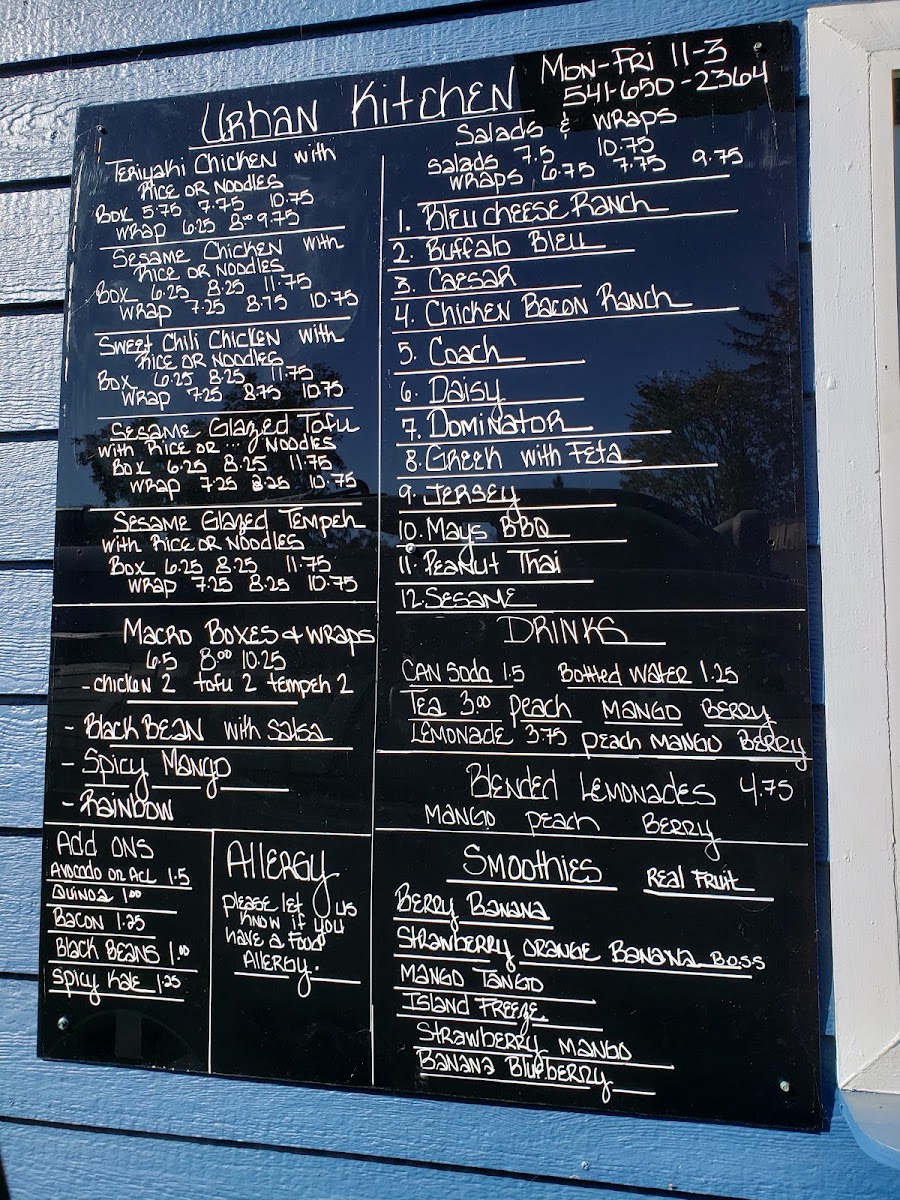 Urban Kitchen
Mon-Fri 11-3
541-650-2364
Teriyaki Chicken with
Rice or Noodles
Box 5.75 7.75 10.75
Wrap 6.25 8.00 9.75
Sesame Chicken with
Rice or Noodles
Box 6.25 8.25 11.75
Wrap 7.25 8.75 10.75
Sweet Chili Chicken with
Rice or Noodles
Box 6.25 8.25 11.75
Wrap 7.25 8.75 10.75
Sesame Glazed Tofu
with Rice or ... Noodles
Box 6.25 8.25 11.75
Wrap 7.25 8.25 10.75
Sesame Glazed Tempeh
with Rice or Noodles
Box 6.25 8.25 11.75
Wrap 7.25 8.25 10.75
Macro Boxes & Wraps
6.5 8.00 10.25
- chicken 2 tofu 2 tempeh 2
- Black Bean with Salsa
- Spicy Mango
- Rainbow
Add ons
Avocado on ALL 1.5
Quinoa 1.00
Bacon 1.25
Black Beans 1.00
Spicy Kale 1.25
Allergy
please let us
know if you
have a food
Allergy.
Salads & Wraps
Salads 7.5 10.75
Wraps 6.75 7.75 9.75
1. Bleu cheese Ranch
2. Buffalo Bleu
3. Caesar
4. Chicken Bacon Ranch
5. Coach
6. Daisy
7. Dominator
8. Greek with Feta
9. Jersey
10. Mays BBQ
11. Peanut Thai
12. Sesame
Drinks
Can Soda 1.5 Bottled Water 1.25
Tea 3.00 Peach Mango Berry
Lemonade 3.75 peach Mango Berry
Blended Lemonades 4.75
Mango Peach Berry
Smoothies Real Fruit
Berry Banana
Strawberry Orange Banana B.O.S.S
Mango Tango
Island Freeze
Strawberry Mango
Banana Blueberry